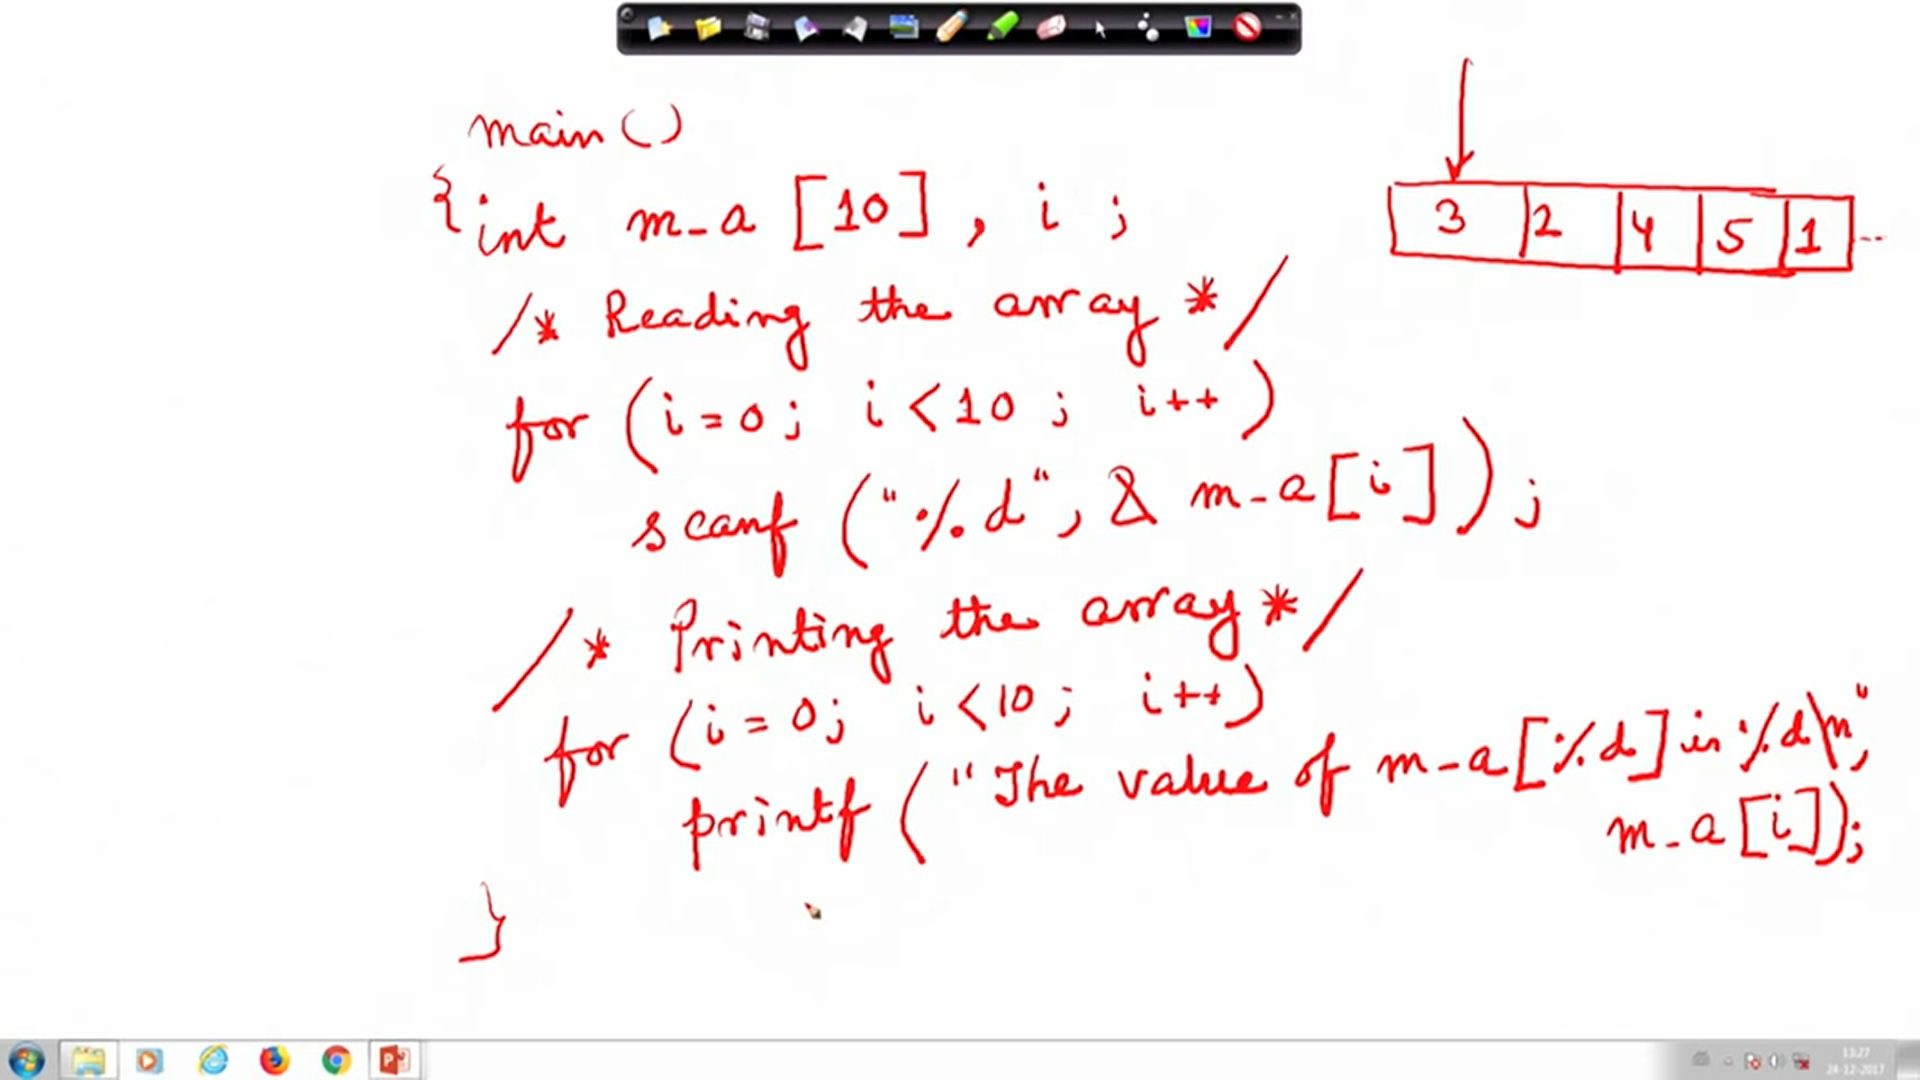 main()
{int m_a [10], i ;
3 2 4 5 1 ...
/* Reading the array */
for (i=0; i<10 ; i++)
scanf ("%d", & m_a[i]);
/* Printing the array */
for (i=0; i<10; i++)
printf ("The value of m_a[%d] is %d\n",
m_a[i]);
}
13:27
24-12-2017